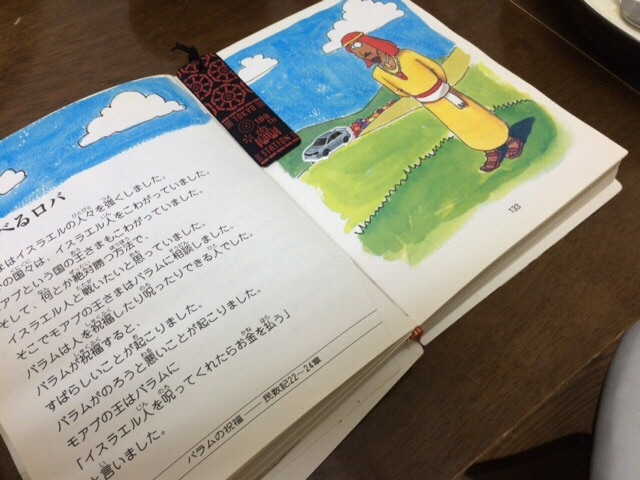 べるロバ
まはイスラエルの人々を強くしました。
の国々は、イスラエル人をこわがっていました。
アブという国の王さまもこわがっていました。
そして、何とか絶対勝つ方法で、
イスラエル人と戦いたいと思っていました。
そこでモアブの王さまはバラムに相談しました。
バラムは人を祝福したり呪ったりできる人でした。
バラムが祝福すると、
すばらしいことが起こりました。
バラムがのろうと悪いことが起こりました。
モアブの王はバラムに
「イスラエル人を呪ってくれたらお金を払う」
と言いました。
バラムの祝福 民数記22-24章
TOKYO
STATION
133